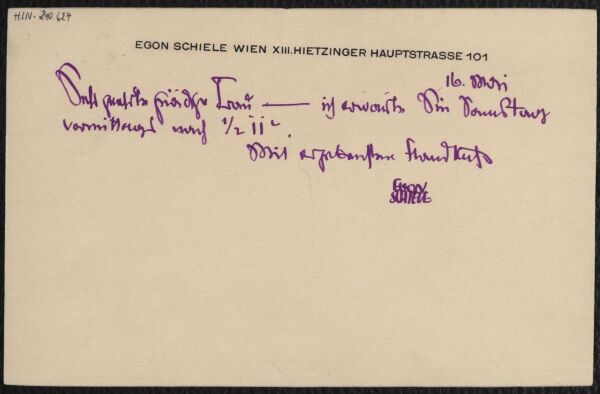 H.I.N.-240.627
EGON SCHIELE WIEN XIII. HIETZINGER HAUPTSTRASSE 101
16. Mai
Sehr geehrte gnädige Frau — ich erwarte Sie Samstag
vormittags nach ½ 11ʰ.
Mit ergebensten Handkuß
EGON
SCHIELE